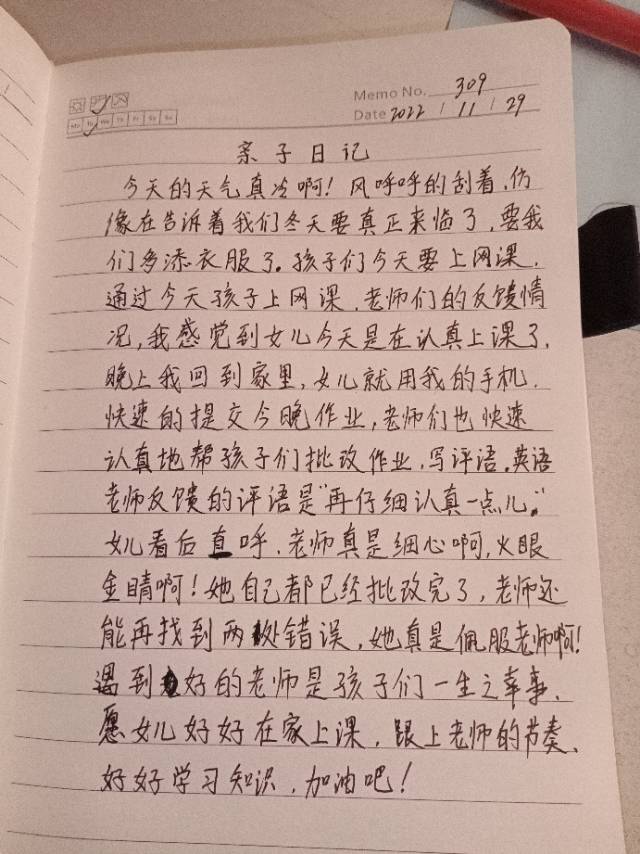 Memo No. 309
Mo Tu We Th Fr Sa Su
Date 2022 / 11 / 29
亲子日记
今天的天气真冷啊！风呼呼的刮着，仿
像在告诉着我们冬天要真正来临了，要我
们多添衣服了。孩子们今天要上网课，
通过今天孩子上网课，老师们的反馈情
况，我感觉到女儿今天是在认真上课了，
晚上我回到家里，女儿就用我的手机，
快速的提交今晚作业，老师们也快速
认真地帮孩子们批改作业，写评语。英语
老师反馈的评语是“再仔细认真一点儿。”
女儿看后直呼，老师真是细心啊，火眼
金睛啊！她自己都已经批改完了，老师还
能再找到两处错误，她真是佩服老师啊！
遇到好的老师是孩子们一生之幸事，
愿女儿好好在家上课，跟上老师的节奏、
好好学习知识，加油吧！